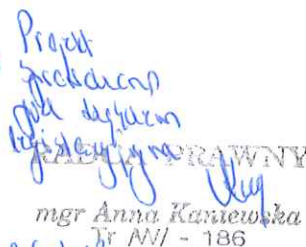 Projekt
sprawdzono
pod względem
legislacyjnym
RADCA PRAWNY
mgr Anna Kaniewska
Tr /W/ - 186